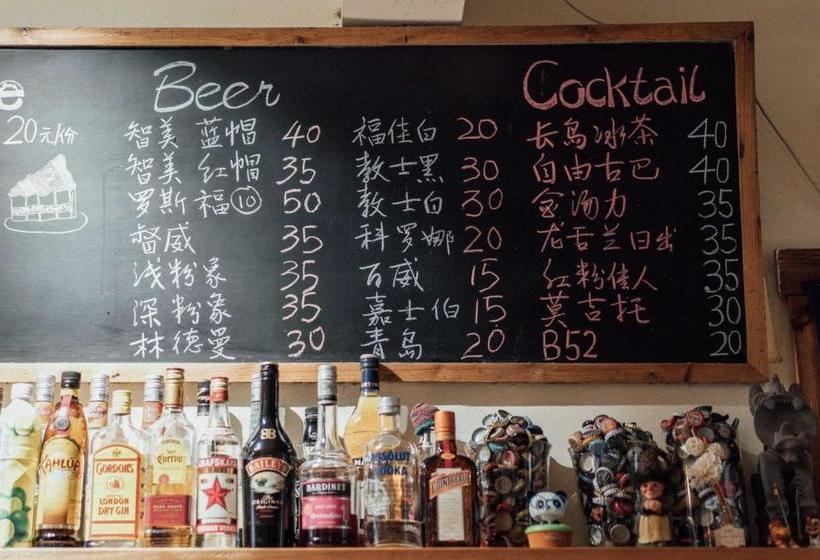 e
20元/份
Beer
智美 蓝帽 40
智美 红帽 35
罗斯 福⑩ 50
督威 35
浅粉象 35
深粉象 35
林德曼 30
福佳白 20
教士黑 30
教士白 30
科罗娜 20
百威 15
嘉士伯 15
青岛 20
Cocktail
长岛冰茶 40
自由古巴 40
金汤力 35
龙舌兰日出 35
红粉佳人 35
莫吉托 30
B52 20
KAHLÚA
GORDON'S
LONDON
DRY GIN
Cuervo
GRAFSKAYA
BAILEYS
ORIGINAL
BARDINET
Grenadine
ABSOLUT
VODKA
COINTREAU